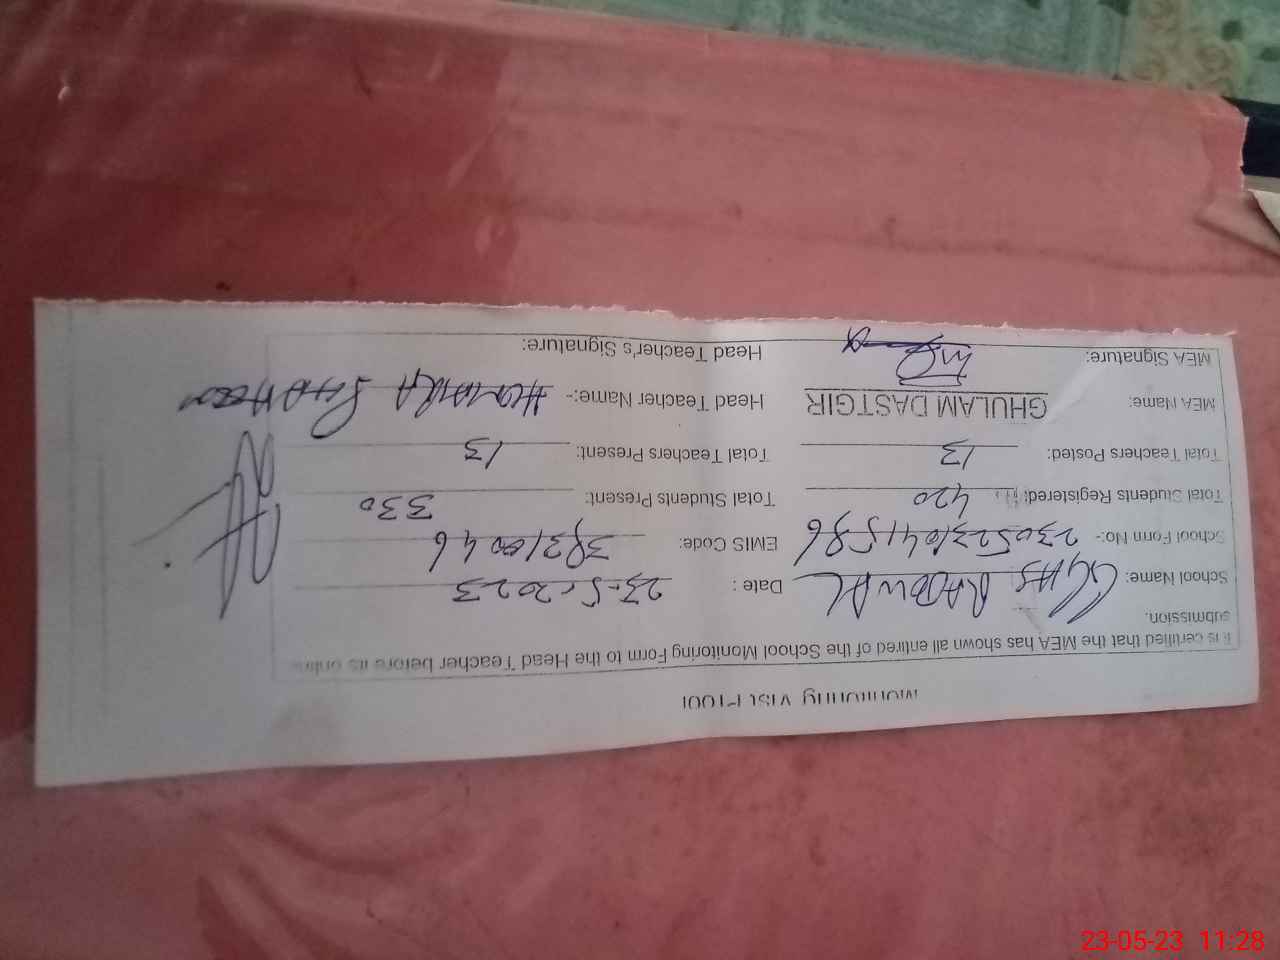 Monitoring Visit Proof
It is certified that the MEA has shown all entired of the School Monitoring Form to the Head Teacher before its online
submission.
School Name: GGHS RADDWAL Date: 23-5-2023
School Form No:- 2305231041586 EMIS Code: 38310046
Total Students Registered: 420 Total Students Present: 330
Total Teachers Posted: 13 Total Teachers Present: 13
MEA Name: GHULAM DASTGIR Head Teacher Name:- HUMAIRA
MEA Signature: Head Teacher's Signature:
23-05-23 11:28